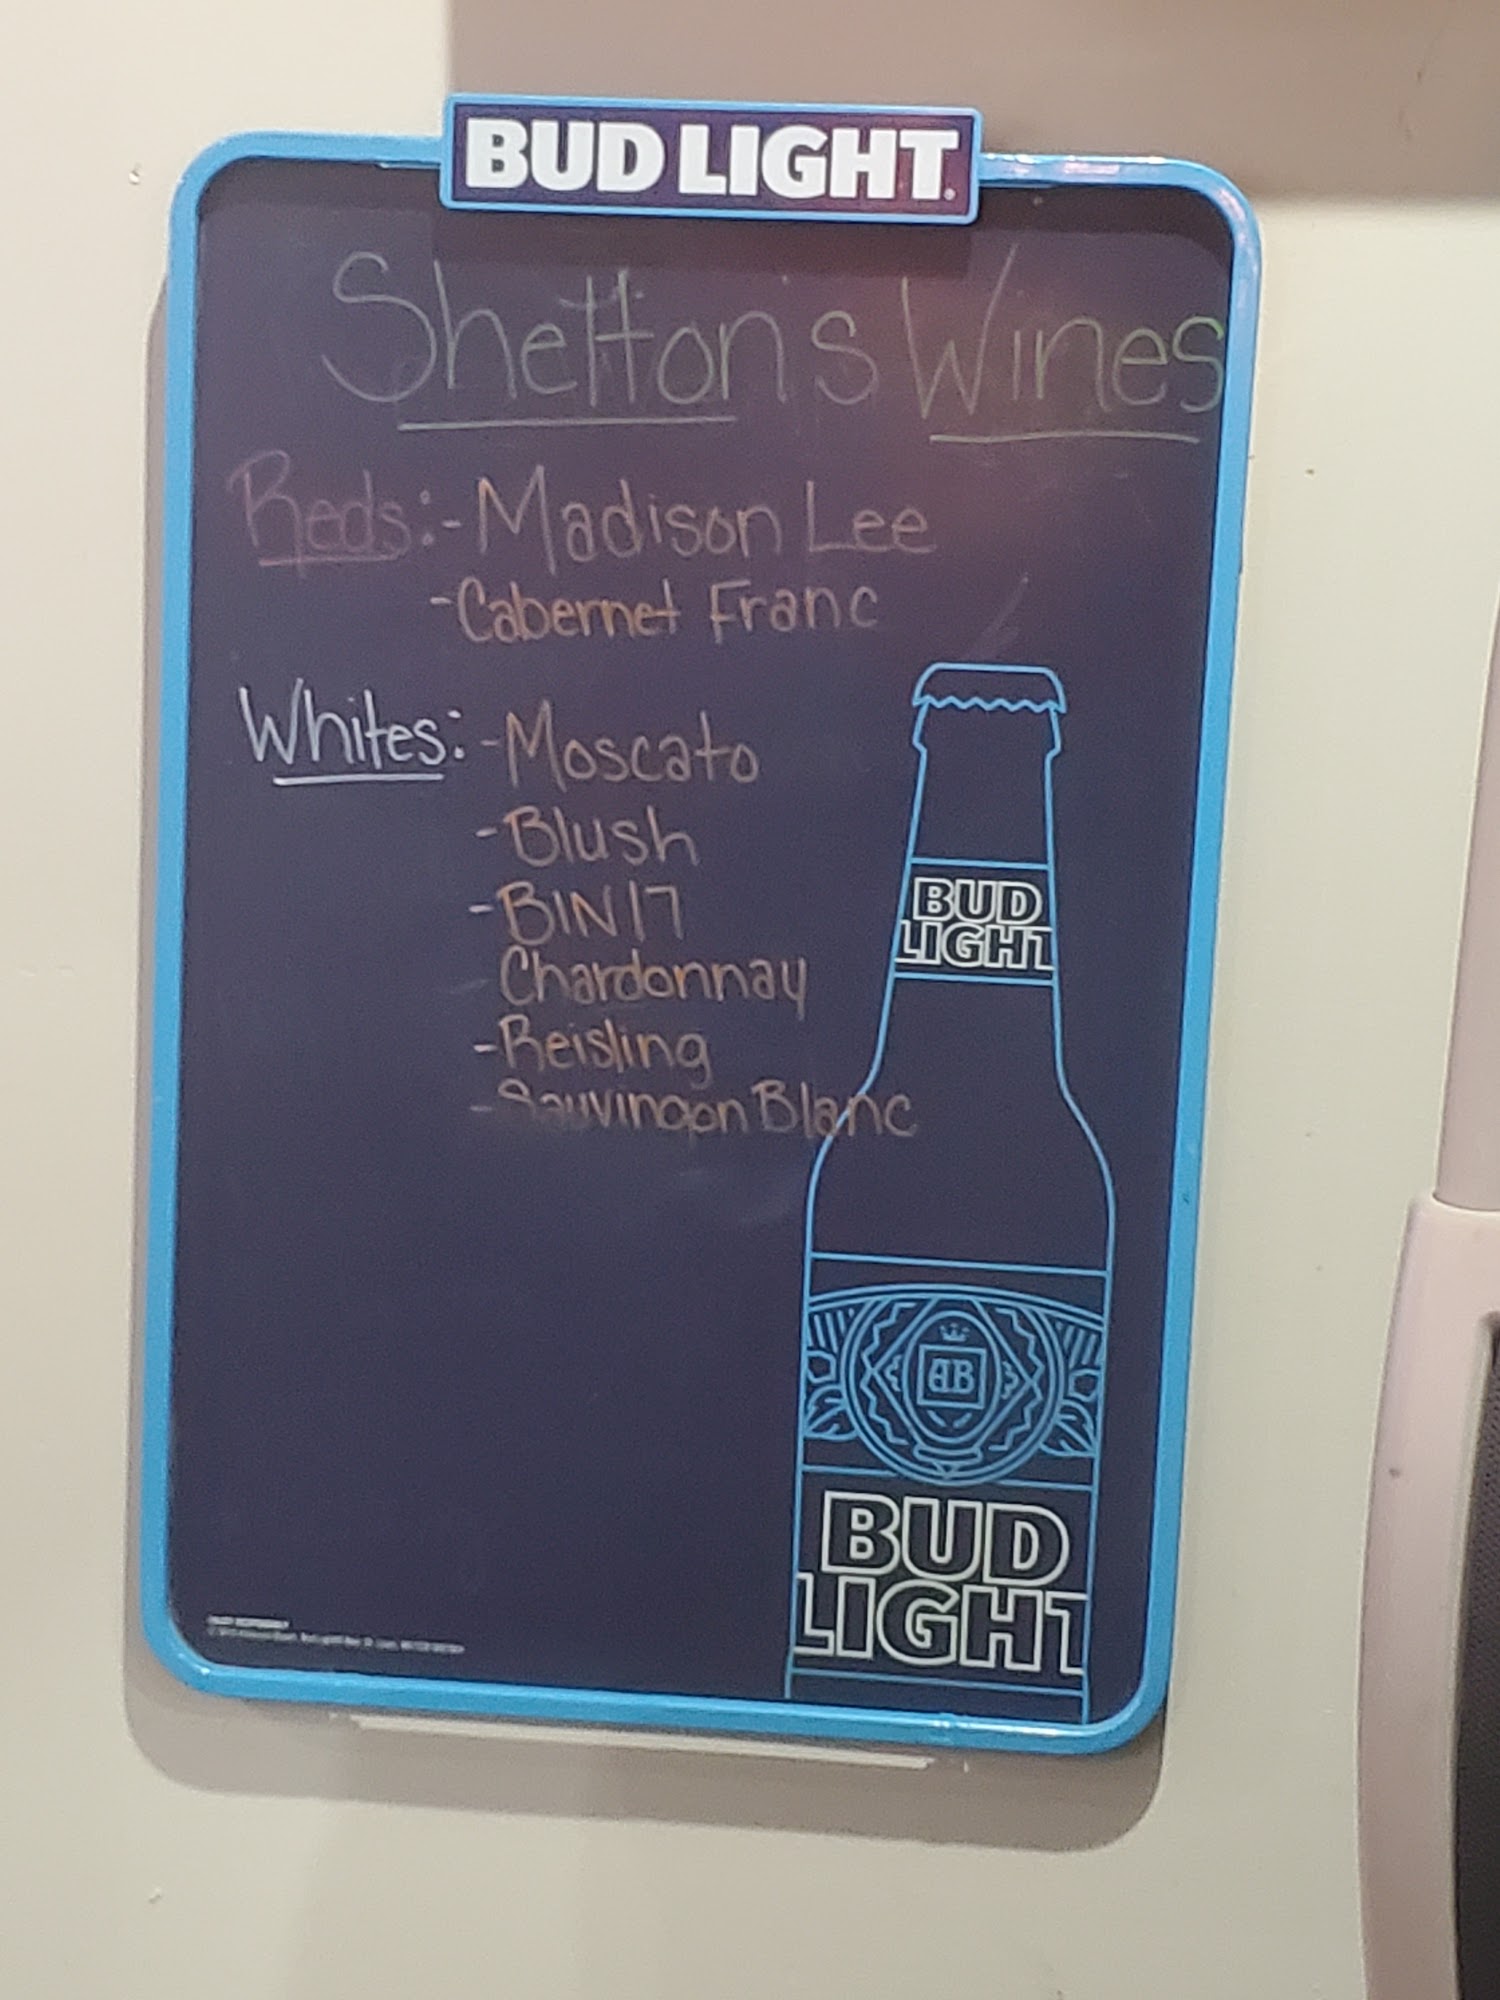 BUD LIGHT.
Shelton's Wines
Reds:-Madison Lee
-Cabernet Franc
Whites:-Moscato
-Blush
-BIN17
Chardonnay
-Reisling
-Sauvingon Blanc
BUD
LIGHT
AB
BUD
LIGHT